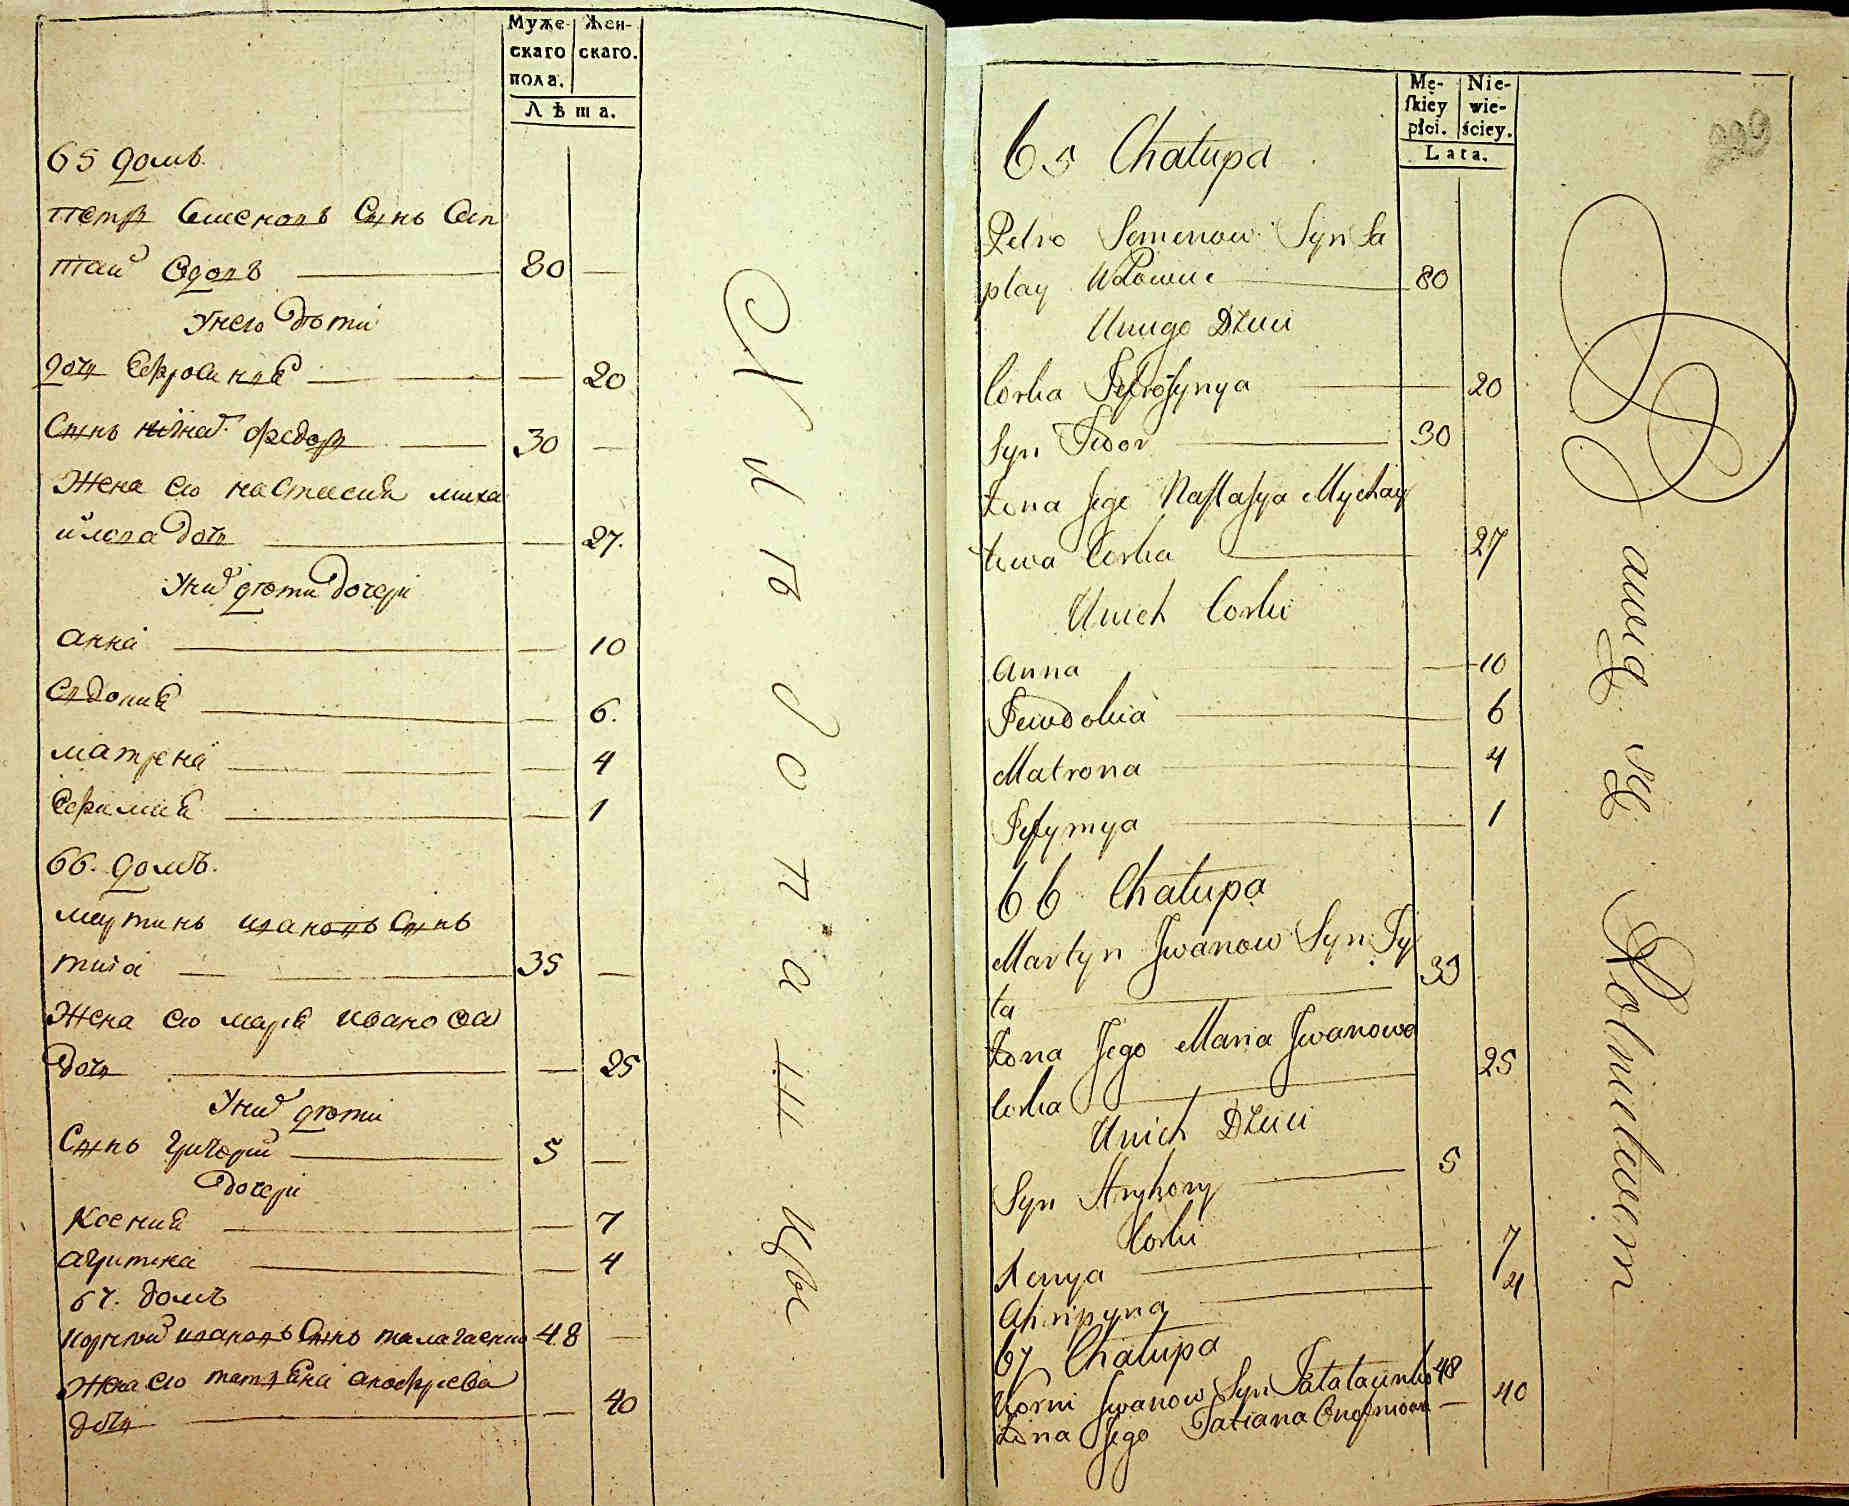 Муже-
скаго
пола.
Жен-
скаго.
Лѣта.
65 домъ.
петръ Семеновъ Сынъ Сап
тай вдовъ 80
Унего дѣти
дочь Ефросинія 20
Сынъ Федоръ 30
Жена его настасия миха
илова дочь 27.
Уних дѣти дочери
анна 10
Евдокия 6.
матрена 4
Ефимия 1
66. домъ.
мартинъ ивановъ Сынъ
тита 35
Жена его мария иванова
дочь 25
Уних дѣти
Сынъ григорий 5
дочери
Ксения 7
агрипина 4
67. домъ
корней ивановъ Сынъ 48
Жена его татияна онофриева
дочь 40
Хлѣбопашцы
Mę-
skiey
płci.
Nie-
wie-
ściey.
Lata.
65 Chałupa
Petro Semenow Syn Sa
play Wdowiec 80
Uniego Dzieci
Corka Jefrosynya 20
Syn Fedor 30
Żona Jego Nastasya Mychay
łowa Corka 27
Unich Corki
Anna 10
Jewdokia 6
Matrona 4
Jefymya 1
66 Chałupa
Martyn Jwanow Syn Ty
ta 35
Żona Jego Maria Jwanowa
Corka 25
Unich Dzieci
Syn Hryhory 5
Corki
Xenya 7
Ahripyna 4
67 Chałupa
Korni Jwanow Syn 48
Żona Jego Tatiana Onofriowa 40
Bawią się Rolnictwem